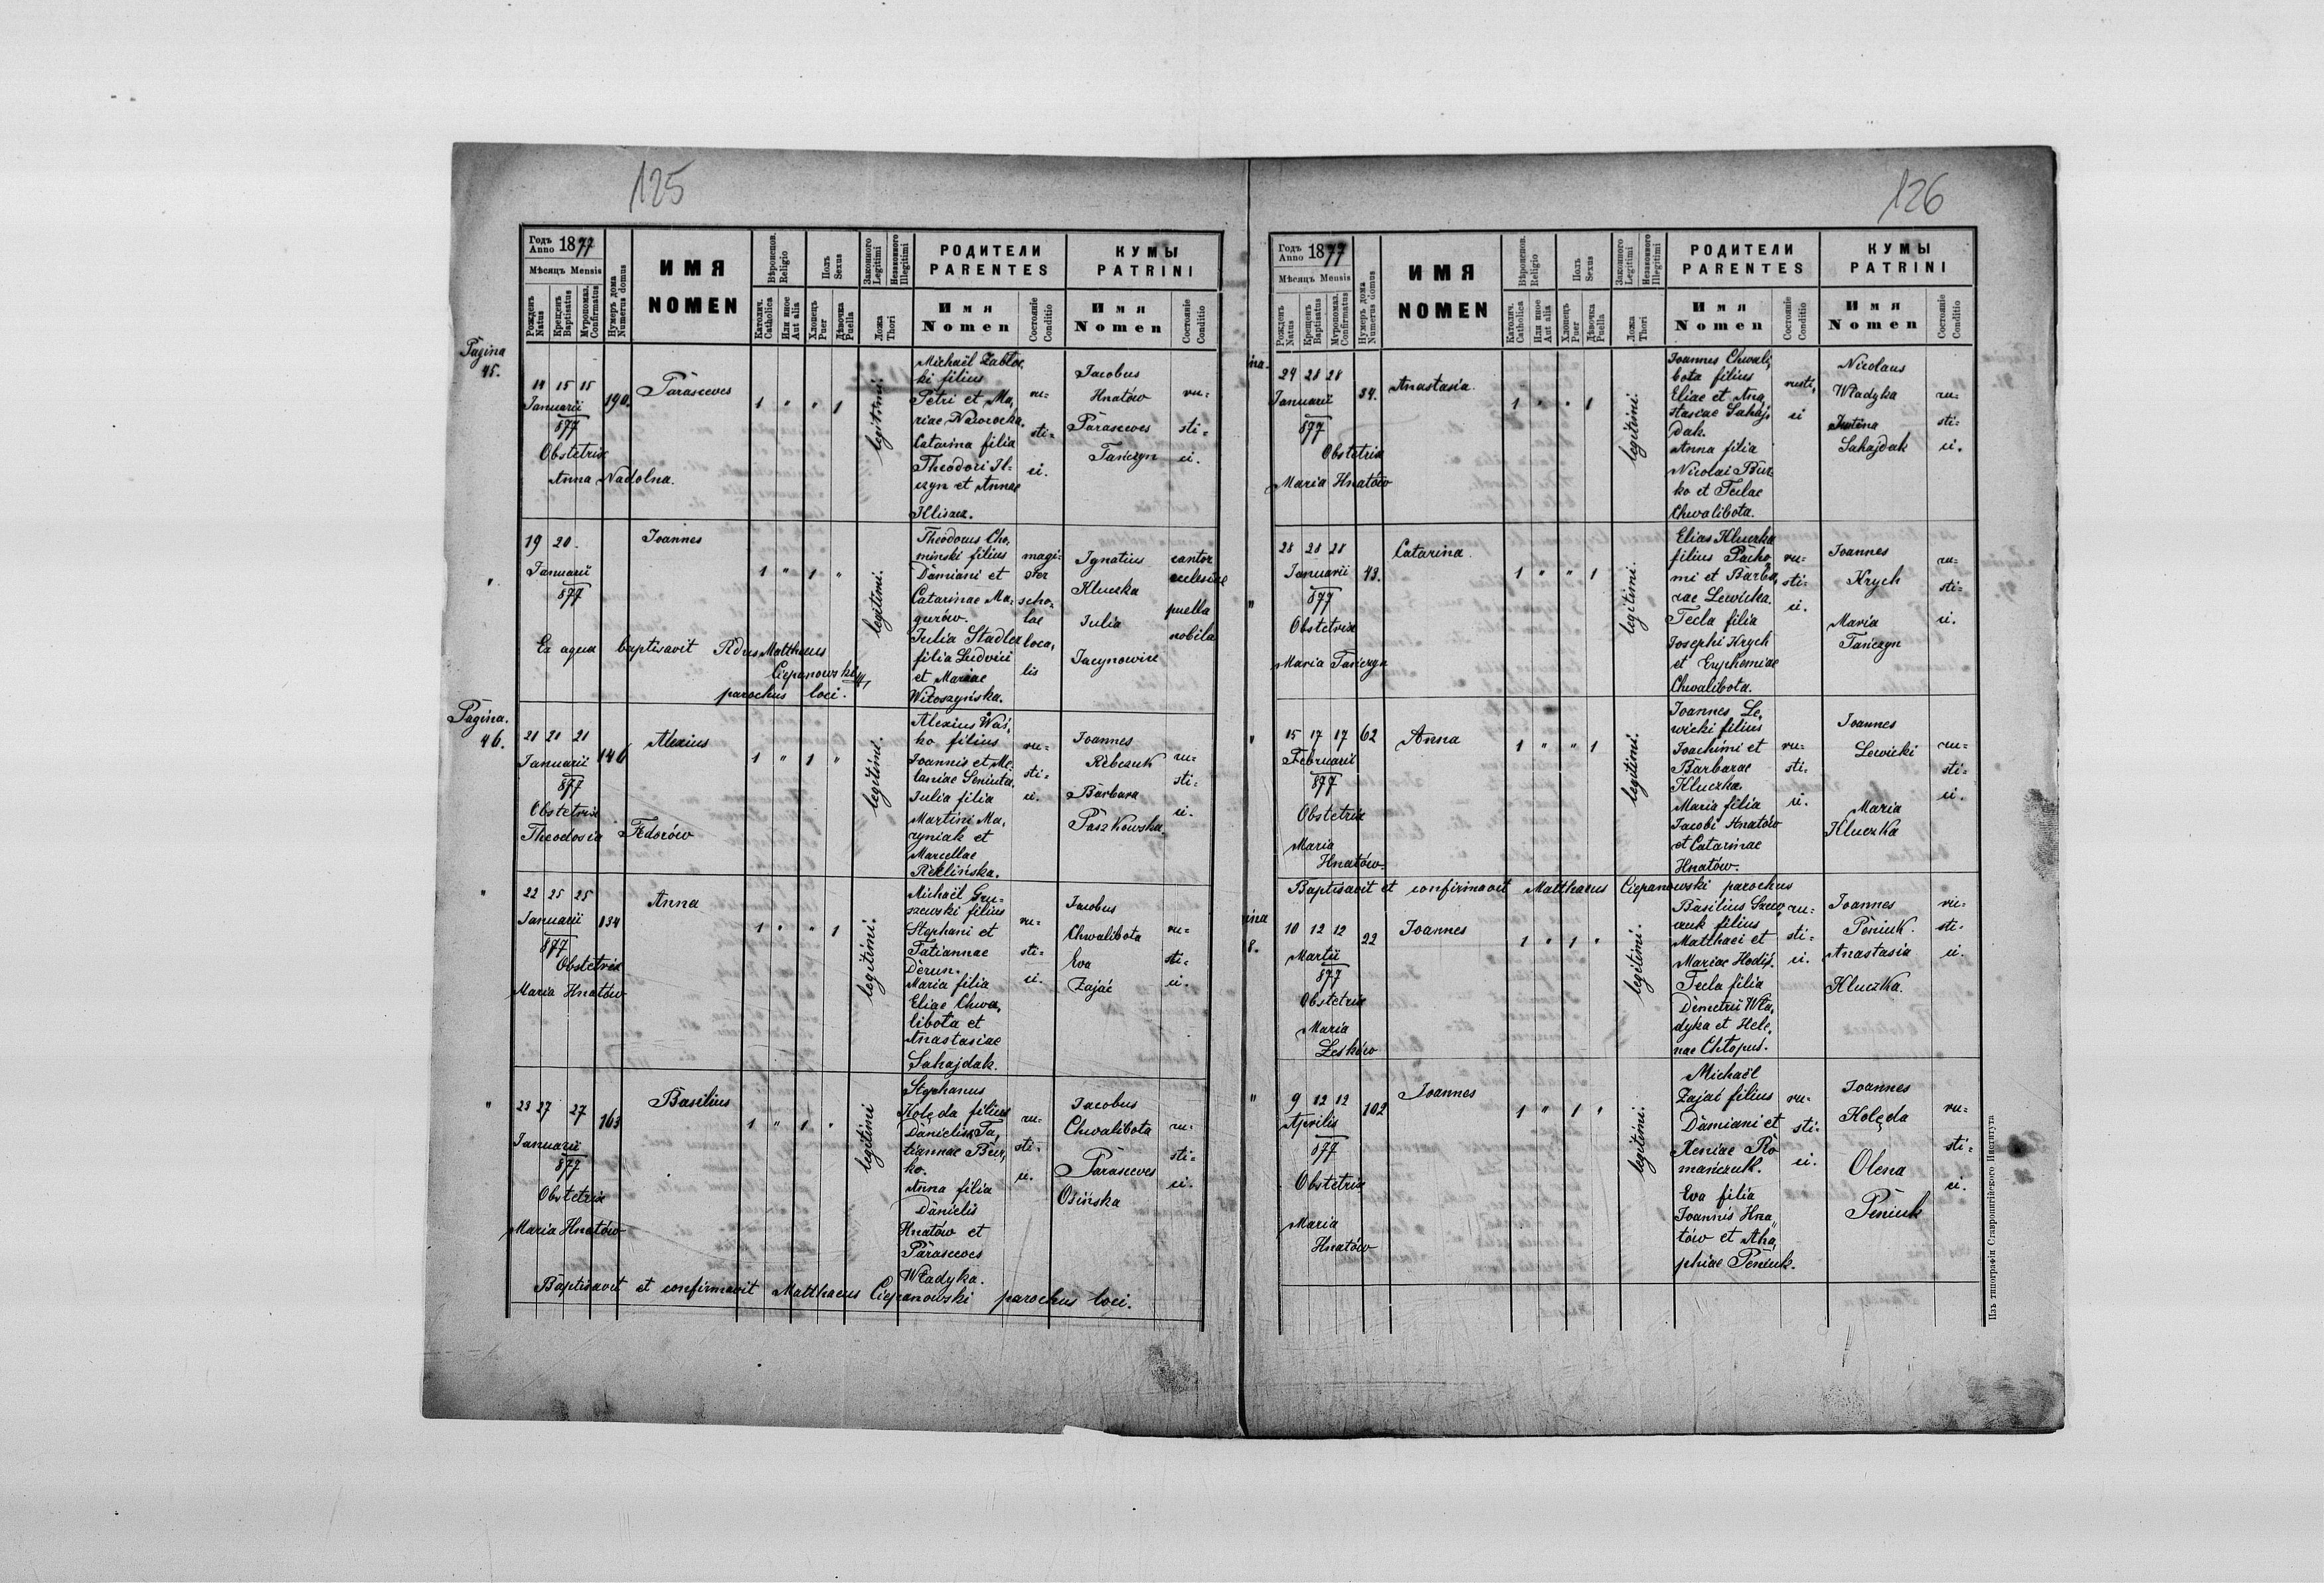 125
Годъ Anno 1877
Мѣсяцъ Mensis
Рожденъ Natus
Крещенъ Baptisatus
Мѵропомаз. Confirmatus
Нумеръ дома Numerus domus
ИМЯ
NOMEN
Вѣроисповѣд. Religio
Католич. Catholica
Или иное Aut alia
Полъ Sexus
Хлопецъ Puer
Дѣвочка Puella
Законного Legitimi
Незаконного Illegitimi
Ложа Thori
РОДИТЕЛИ
PARENTES
Имя
Nomen
Состояніе Conditio
КУМЫ
PATRINI
Имя
Nomen
Состояніе Conditio
Pagina
45.
14 15 15
Januarii
877
190.
Parasceves
1 " " 1
legitimi.
Michaël Zabloc,
ki filius
Petri et Ma,
riae
Catarina filia
Theodori Il-
czyn et Annae
Hliszcz.
ru-
sti-
ci.
Jacobus
Hnatów
Parasceves
Tańczyn
ru-
sti-
ci.
Obstetrix
Anna Nadolna.
"
19 20.
Januarii
877
Joannes
1 " 1 "
legitimi.
Theodorus Cho,
minski filius
Damiani et
Catarinae Ma-
gurów.
Julia Stadler
filia Ludovici
et Mariae
Witoszyńska.
magi-
ster
scho-
lae
loca,
lis
Ignatius
Kluczka
Julia
Jacynowicz
cantor
ecclesiae
puella
nobila
Ex aqua baptisavit Rdus Matthaeus
Ciepanowski
parochus loci.
Pagina.
46.
21 21 21
Januarii
877
146
Alexius
1 " 1 "
legitimi.
Alexius Waś,
ko filius
Joannis et Me,
laniae Seniuta.
Julia filia
Martini Ma,
zyniak et
Marcellae
Reklińska.
ru-
sti-
ci.
Joannes
Rebczuk
Barbara
Paszkowska.
ru-
sti-
ci.
Obstetrix
Theodosia Fedorów
"
22 25 25
Januarii
877
134
Anna
1 " " 1
legitimi.
Michaël Gru-
szewski filius
Stephani et
Tatiannae
Derun.
Maria filia
Eliae Chwa,
libota et
Anastasiae
Sahajdak.
ru-
sti-
ci.
Jacobus
Chwalibota
Eva
Zajać
ru-
sti-
ci.
Obstetrix
Maria Hnatów
"
23 27 27
Januarii
877
163
Basilius
1 " 1 "
legitimi
Stephanus
Kolęda filius
Danielis Ta,
tiannae Bur,
ko.
Anna filia
Danielis
Hnatów et
Parasceves
Władyka.
ru-
sti-
ci.
Jacobus
Chwalibota
Parasceves
Osińska
ru-
sti-
ci.
Obstetrix
Maria Hnatów
Baptisavit et confirmavit Matthaeus Ciepanowski parochus loci.
126
Годъ Anno 1877
Мѣсяцъ Mensis
Рожденъ Natus
Крещенъ Baptisatus
Мѵропомаз. Confirmatus
Нумеръ дома Numerus domus
ИМЯ
NOMEN
Вѣроисповѣд. Religio
Католич. Catholica
Или иное Aut alia
Полъ Sexus
Хлопецъ Puer
Дѣвочка Puella
Законного Legitimi
Незаконного Illegitimi
Ложа Thori
РОДИТЕЛИ
PARENTES
Имя
Nomen
Состояніе Conditio
КУМЫ
PATRINI
Имя
Nomen
Состояніе Conditio
ina.
24 28 28
Januarii
877
34.
Anastasia
1 " " 1
legitimi.
Joannes Chwali,
bota filius
Eliae et Ana,
stasiae Sahaj,
dak.
Anna filia
Nicolai Bur
ko et Teclae
Chwalibota.
rusti,
ci
Nicolaus
Władyka
Justina
Sahajdak
ru-
sti-
ci.
Obstetrix
Maria Hnatów
"
28 28 28
Januarii
877
43.
Catarina
1 " " 1
legitimi.
Elias Kluczka
filius Pacho,
mi et Barba,
rae Lewicka.
Tecla filia
Josephi Krych
et Euphemiae
Chwalibota.
ru-
sti-
ci.
Joannes
Krych
Maria
Tańczyn
ru-
sti-
ci.
Obstetrix
Maria Tańczyn
"
15 17 17
Februarii
877
62
Anna
1 " " 1
legitimi.
Joannes Le,
wicki filius
Joachimi et
Barbarae
Kluczka.
Maria filia
Jacobi Hnatów
et Catarinae
Hnatów.
ru-
sti-
ci.
Joannes
Lewicki
Maria
Kluczka
ru-
sti-
ci.
Obstetrix
Maria
Hnatów.
Baptisavit et confirmavit Matthaeus Ciepanowski parochus
ina
8.
10 12 12
Martii
877
22
Joannes
1 " 1 "
legitimi.
Basilius Szew,
czuk filius
Matthaei et
Mariae Hodiś.
Tecla filia
Demetrii Wła,
dyka et Hele,
nae Chłopuś.
ru-
sti-
ci.
Joannes
Peniuk.
Anastasia
Kluczka.
ru-
sti-
ci.
Obstetrix
Maria
Leśków
"
9 12 12
Aprilis
877
102
Joannes
1 " 1 "
legitimi.
Michaël
Zajać filius
Damiani et
Xeniae Ro
mańczuk.
Eva filia
Joannis Hna
tów et Aha,
phiae Peniuk.
ru-
sti-
ci.
Joannes
Kolęda
Olena
Peniuk
ru-
sti-
ci.
Obstetrix
Maria
Hnatów
Изъ типографіи Ставропигійского Института